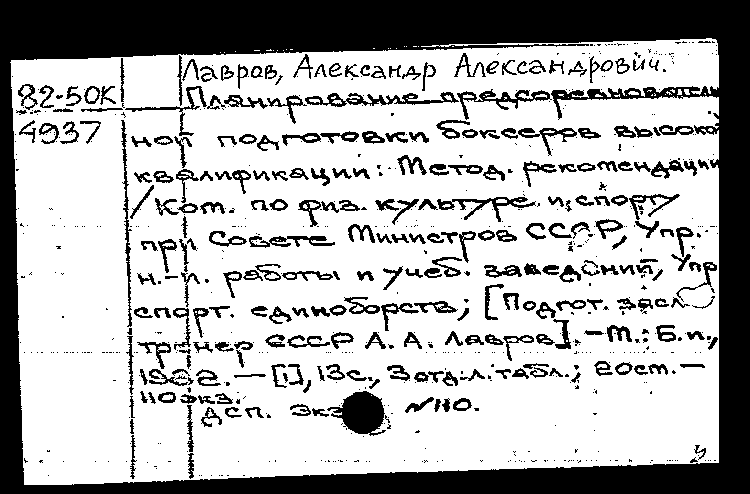 Лавров, Александр Александрович.
82-50К Планирование предсоревнователь
4937 ной подготовки боксеров высокой
квалификации: Метод. рекомендации
/ Ком. по физ. культуре и спорту
при Совете Министров СССР, Упр.
н.-и. работы и учеб. заведений, Упр
спорт. единоборств; [Подгот. засл
тренер СССР А. А. Лавров]. - М.: Б.и.,
1982. - [1], 13с., 3 отд.л. табл.; 20см. -
110экз.
ДСП. Экз N110.